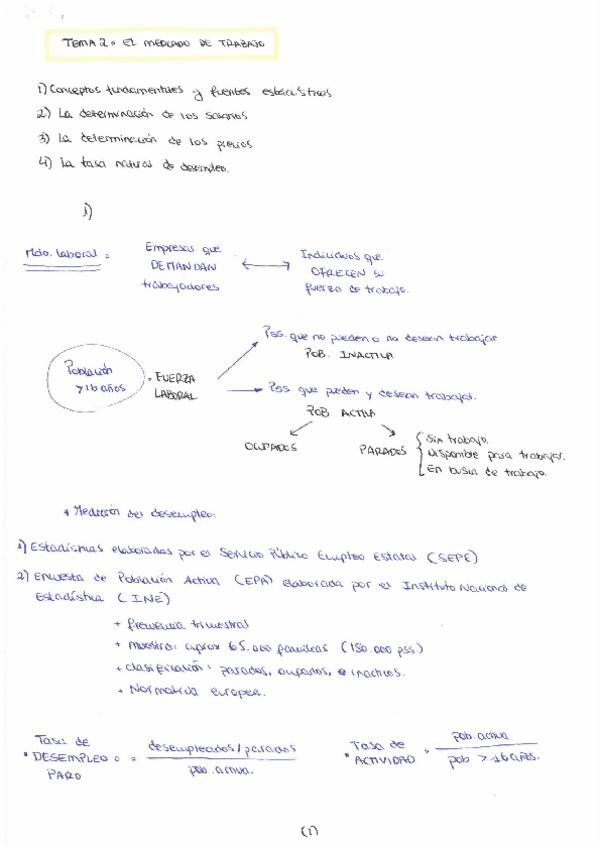 TEMA 2: EL MERCADO DE TRABAJO
1) Conceptos fundamentales y fuentes estadísticas
2) La determinación de los salarios
3) La determinación de los precios
4) La tasa natural de desempleo.
1)
Mdo. laboral =
Empresas que
DEMANDAN
trabajadores
Individuos que
OFRECEN su
fuerza de trabajo.
Pss. que no pueden o no desean trabajar
POB. INACTIVA
Población
>16 años
= FUERZA
LABORAL
Pss. que pueden y desean trabajar.
POB ACTIVA
OCUPADOS
PARADOS
Sin trabajo.
Disponible para trabajar.
En busca de trabajo.
* Medición del desempleo:
1) Estadísticas elaboradas por el Servicio Público Empleo Estatal (SEPE)
2) Encuesta de Población Activa (EPA) elaborada por el Instituto Nacional de
Estadística (INE)
+ frecuencia trimestral
+ muestra: aprox 65.000 familias (150.000 pss)
+ clasificación: parados, ocupados, e inactivos.
+ Normativa europea.
Tasa de
• DESEMPLEO o =
PARO
desempleados/parados
pob. activa.
Tasa de
• ACTIVIDAD =
pob. activa
pob > 16 años.
(1)